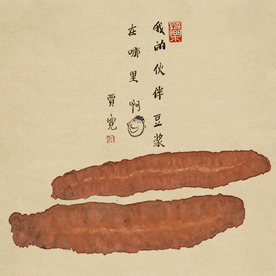 我的伙伴豆浆
在哪里啊
贾宽